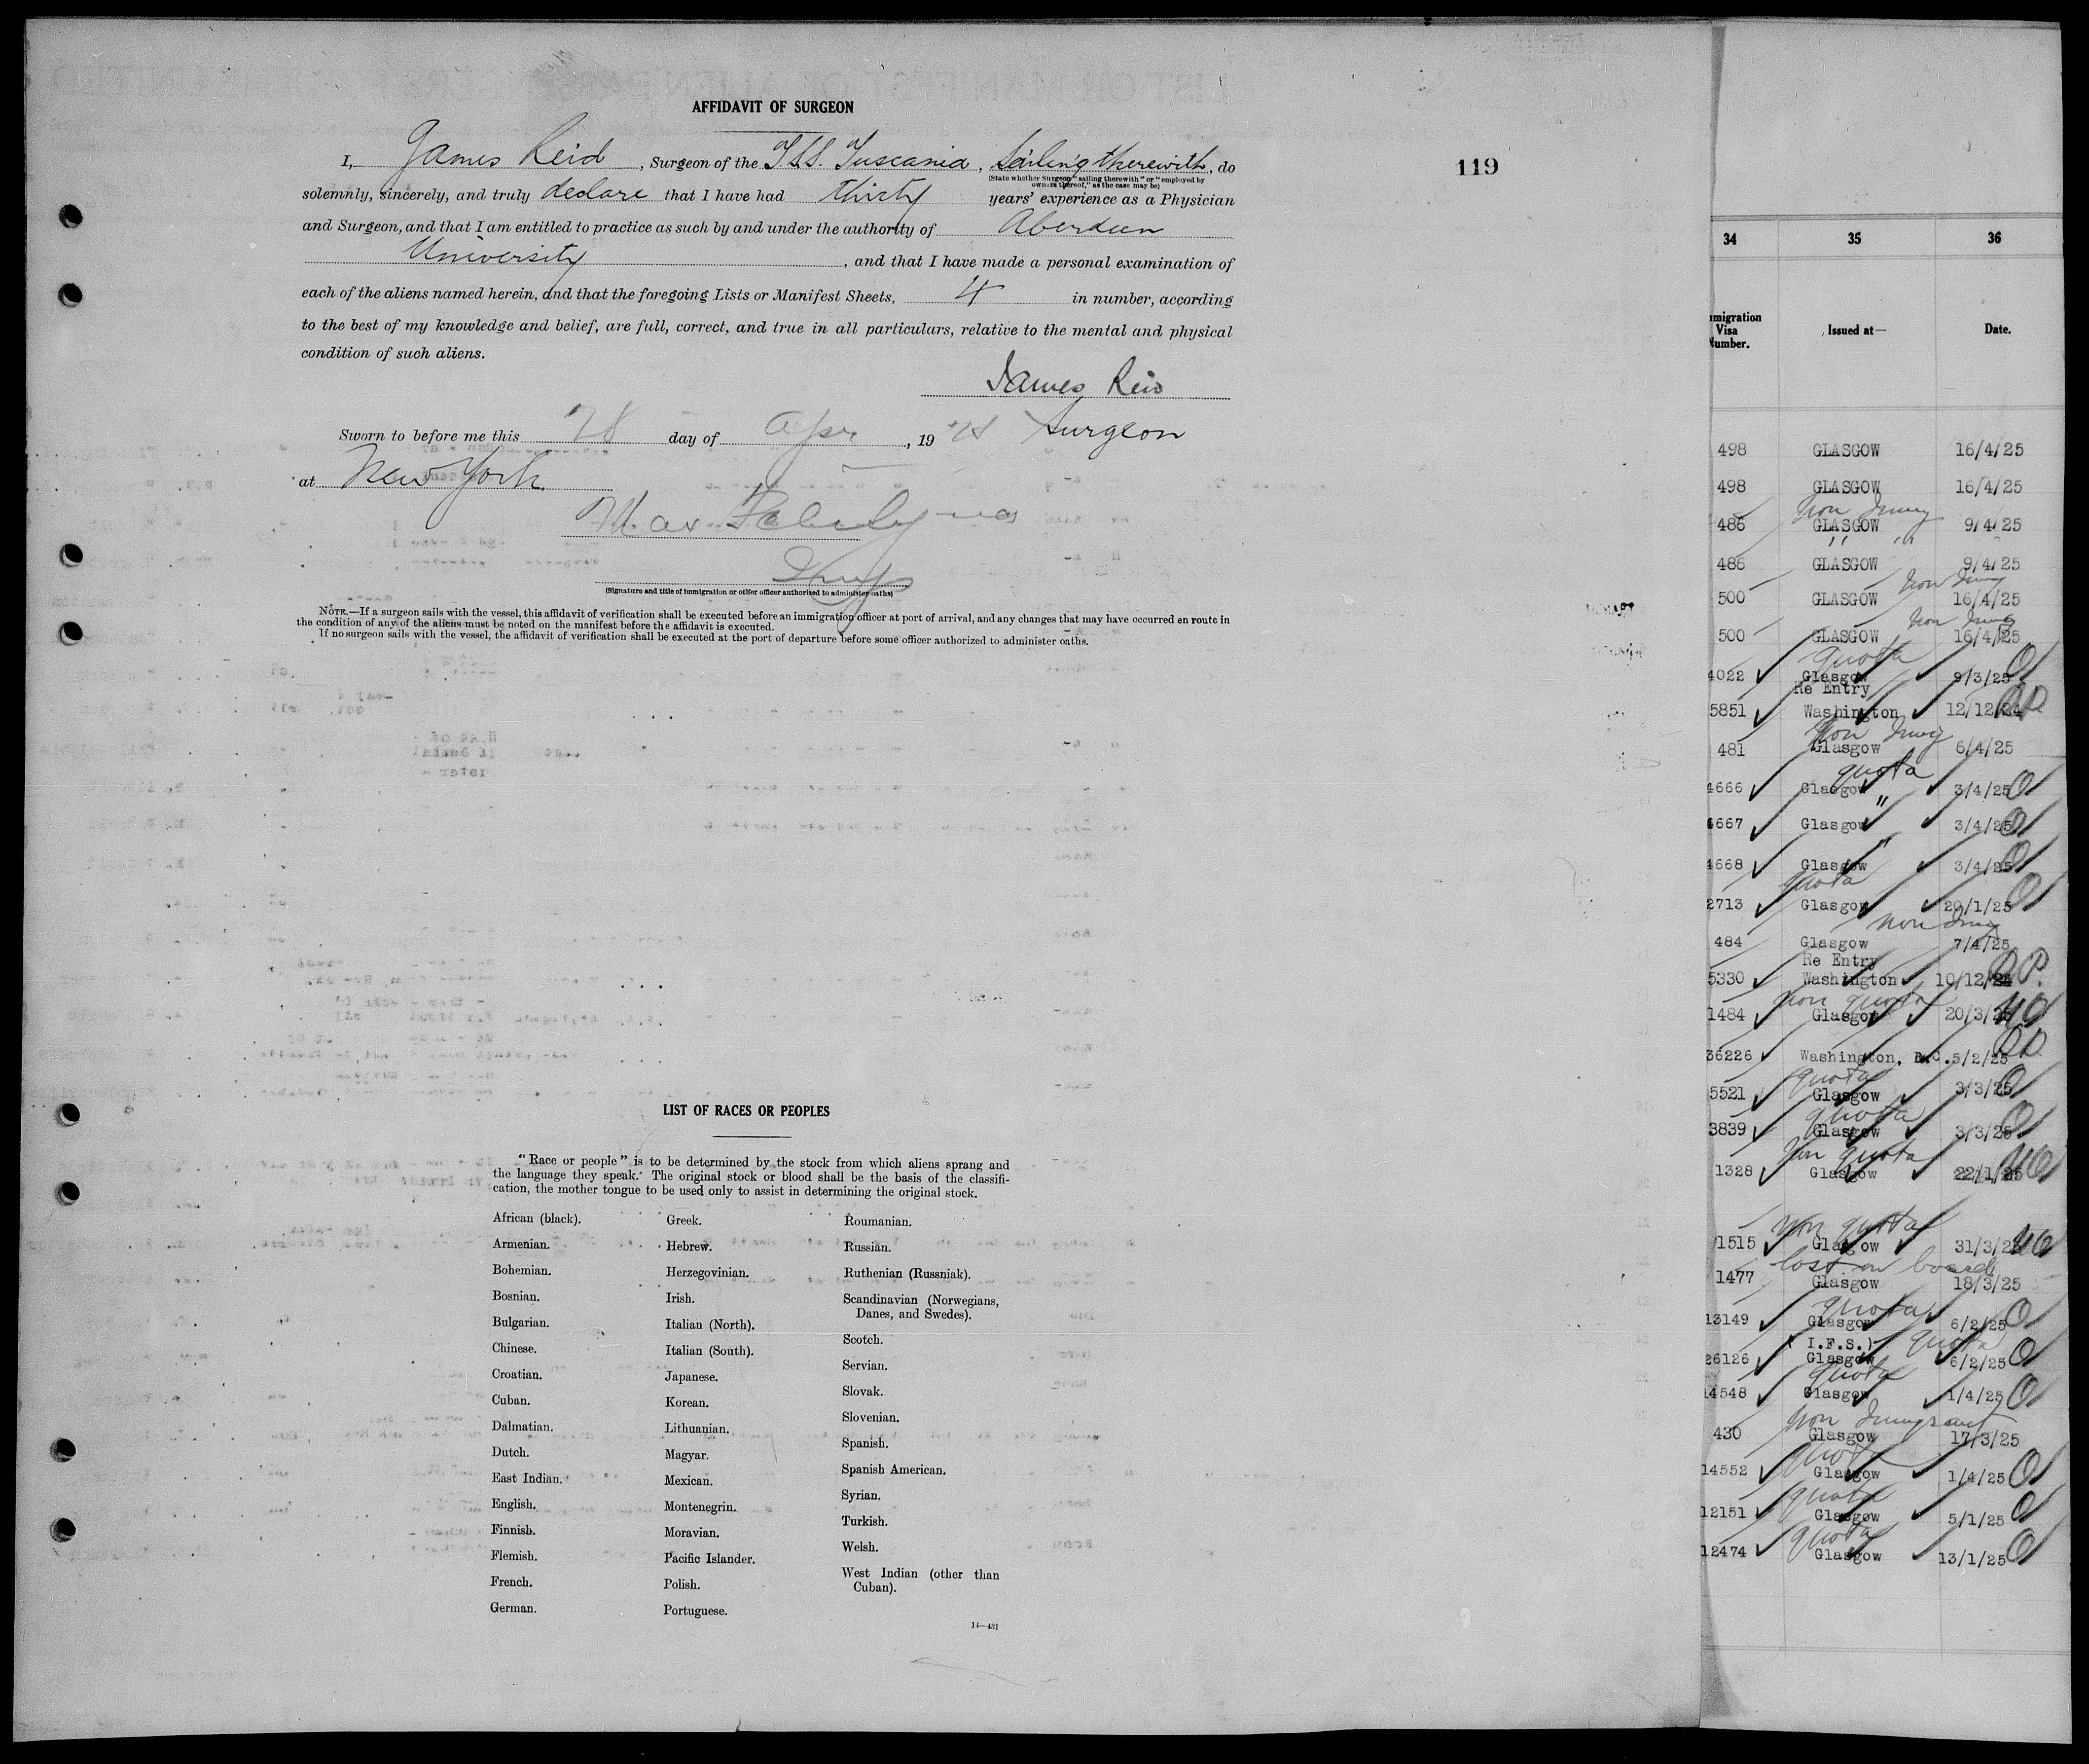 AFFIDAVIT OF SURGEON
I, James Reid, Surgeon of the T.S.S. Tuscania, Sailing therewith, do
(State whether Surgeon "sailing therewith" or "employed by
owners thereof," as the case may be)
solemnly, sincerely, and truly declare that I have had thirty years' experience as a Physician
and Surgeon, and that I am entitled to practice as such by and under the authority of Aberdeen
University, and that I have made a personal examination of
each of the aliens named herein, and that the foregoing Lists or Manifest Sheets, 4 in number, according
to the best of my knowledge and belief, are full, correct, and true in all particulars, relative to the mental and physical
condition of such aliens.
James Reid
Surgeon
Sworn to before me this 28 day of Apr, 19
at New York
Max
Insp
(Signature and title of immigration or other officer authorized to administer oaths)
NOTE.—If a surgeon sails with the vessel, this affidavit of verification shall be executed before an immigration officer at port of arrival, and any changes that may have occurred en route in
the condition of any of the aliens must be noted on the manifest before the affidavit is executed.
If no surgeon sails with the vessel, the affidavit of verification shall be executed at the port of departure before some officer authorized to administer oaths.
LIST OF RACES OR PEOPLES
"Race or people" is to be determined by the stock from which aliens sprang and
the language they speak. The original stock or blood shall be the basis of the classifi-
cation, the mother tongue to be used only to assist in determining the original stock.
African (black).
Armenian.
Bohemian.
Bosnian.
Bulgarian.
Chinese.
Croatian.
Cuban.
Dalmatian.
Dutch.
East Indian.
English.
Finnish.
Flemish.
French.
German.
Greek.
Hebrew.
Herzegovinian.
Irish.
Italian (North).
Italian (South).
Japanese.
Korean.
Lithuanian.
Magyar.
Mexican.
Montenegrin.
Moravian.
Pacific Islander.
Polish.
Portuguese.
Roumanian.
Russian.
Ruthenian (Russniak).
Scandinavian (Norwegians,
Danes, and Swedes).
Scotch.
Servian.
Slovak.
Slovenian.
Spanish.
Spanish American.
Syrian.
Turkish.
Welsh.
West Indian (other than
Cuban).
14—431
119
34 35 36
mmigration
Visa
Number.
Issued at—
Date.
498 GLASGOW 16/4/25
498 GLASGOW 16/4/25
non Immig
486 GLASGOW 9/4/25
" "
486 GLASGOW 9/4/25
non Immig
500 GLASGOW 16/4/25
non Immig
500 GLASGOW 16/4/25
quota
4022 Glasgow 9/3/25 Q
Re Entry
5851 Washington 12/12/24 RP
non Immig
481 Glasgow 6/4/25
quota
4666 Glasgow 3/4/25 Q
"
4667 Glasgow 3/4/25 Q
"
4668 Glasgow 3/4/25 Q
quota
2713 Glasgow 20/1/25 Q
non Immig
484 Glasgow 7/4/25
Re Entry
5330 Washington 10/12/24 RP.
non quota
1484 Glasgow 20/3/25 NQ
36226 Washington, D.C. 5/2/25 RP.
quota
5521 Glasgow 3/3/25 Q
quota
3839 Glasgow 3/3/25 Q
Non quota
1328 Glasgow 22/1/25 NQ
non quota
1515 Glasgow 31/3/25 NQ
lost on board
1477 Glasgow 18/3/25
quota
13149 Glasgow 6/2/25 Q
(I.F.S.) quota
26126 Glasgow 6/2/25 Q
quota
14548 Glasgow 1/4/25 Q
non Immigrant
430 Glasgow 17/3/25
quota
14552 Glasgow 1/4/25 Q
quota
12151 Glasgow 5/1/25 Q
quota
12474 Glasgow 13/1/25 Q